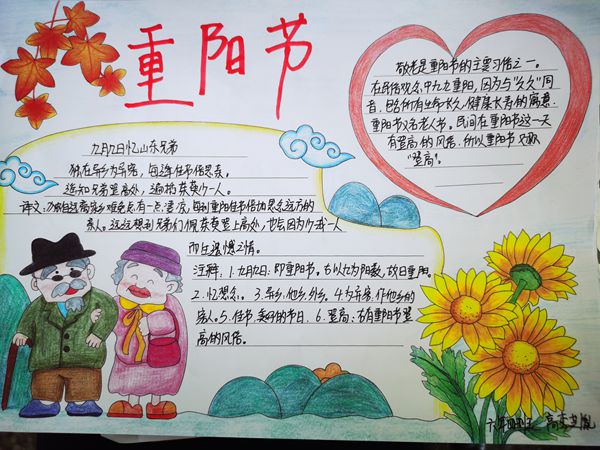 重阳节
敬老是重阳节的主要习俗之一。
在民俗观念中九九重阳，因为与"久久"同
音，包含有生命长久、健康长寿的寓意，
重阳节又名老人节。民间在重阳这一天
有登高的风俗，所以重阳节又叫
"登高"。
九月九日忆山东兄弟
独在异乡为异客，每逢佳节倍思亲。
遥知兄弟登高处，遍插茱萸少一人。
译文：
每到重阳佳节倍加思念远方的
亲人。远远想到兄弟们佩茱萸登上高处，也会因为少我一人
而生遗憾之情。
注释：1.九月九日：即重阳节。古以九为阳数，故曰重阳。
2.忆：想念。3.异乡：他乡、外乡。4.为异客：作他乡的
客人。5.佳节：美好的节日。6.登高：古有重阳节登
高的风俗。